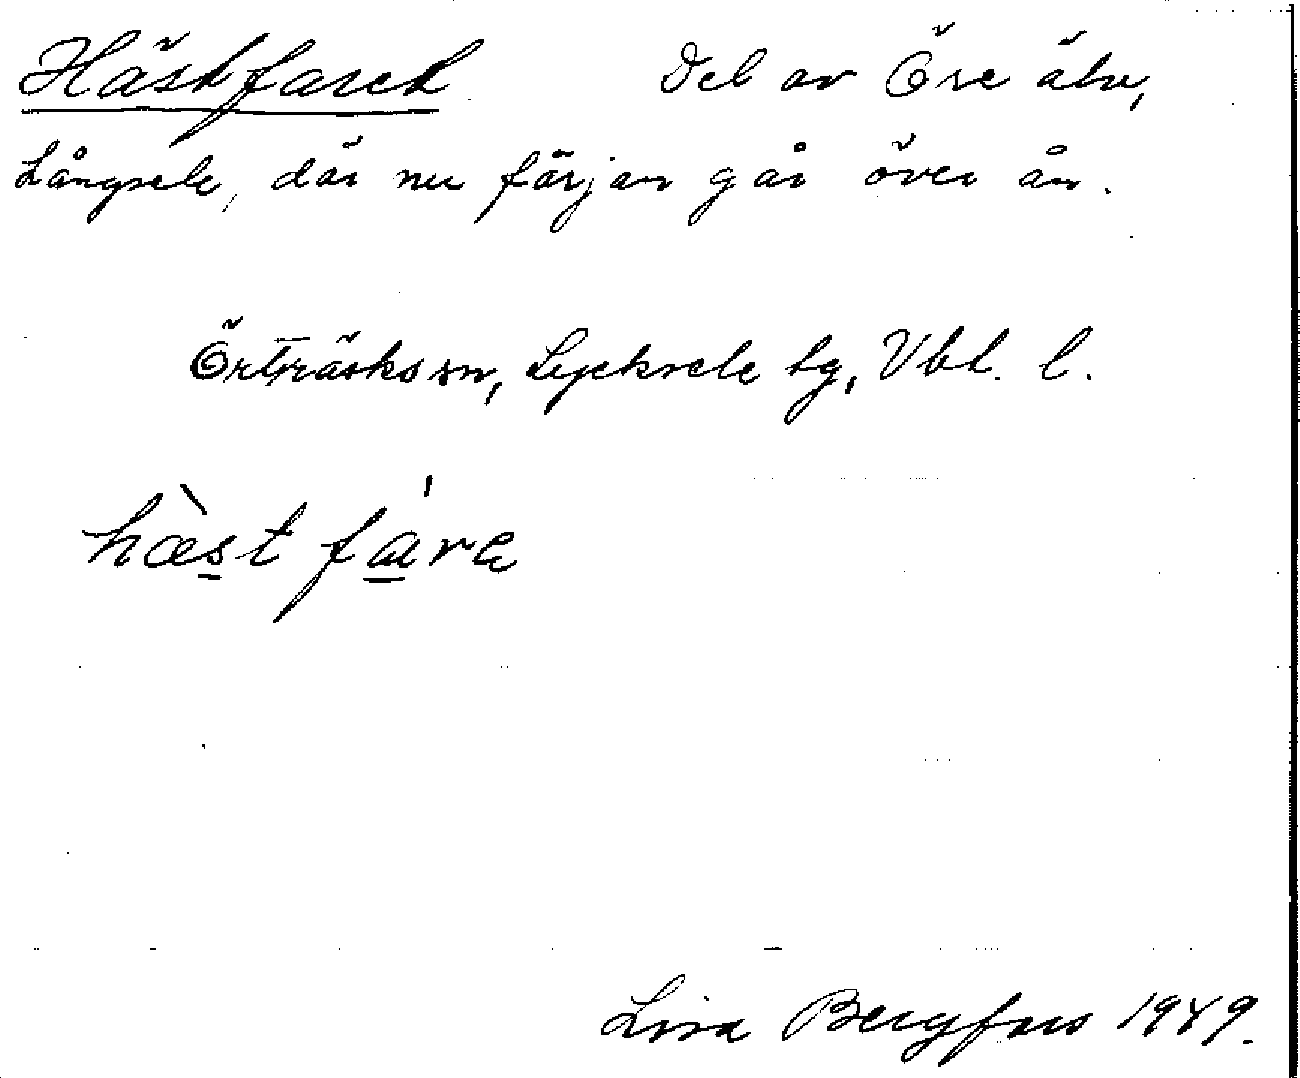 Hästfaret Del av Öre älv,
Långsele, där nu färjan går över ån.
Örträsks sn, Lycksele tg, Vbt. l.
hæ̀st fárɐ
Lisa Bergfors 1949.